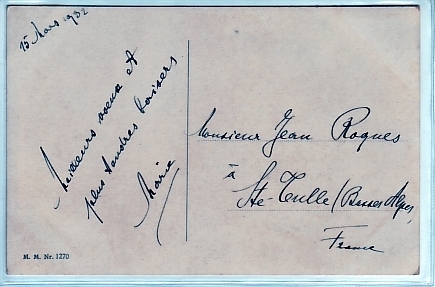 15 Mars 1932
Meilleurs vœux et
plus tendres baisers
Marie
Monsieur Jean Roques
à
Ste-Tulle (Basses Alpes,
France
M. M. Nr. 1270